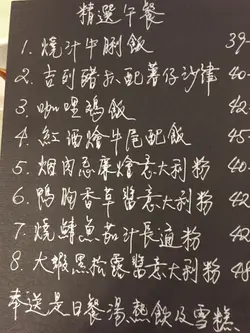 精選午餐
1. 燒汁牛脷飯 39-
2. 吉列豬扒配薯仔沙律 40-
3. 咖哩鸡飯 42-
4. 紅酒燴牛尾配飯 45-
5. 烟肉忌廉燴意大利粉 40
6. 鴨胸香草醬意大利粉 42
7. 燒鯖魚茄汁長通粉 42
8. 大蝦黑松露醬意大利粉 48
奉送是日餐湯,熱飲及雪糕